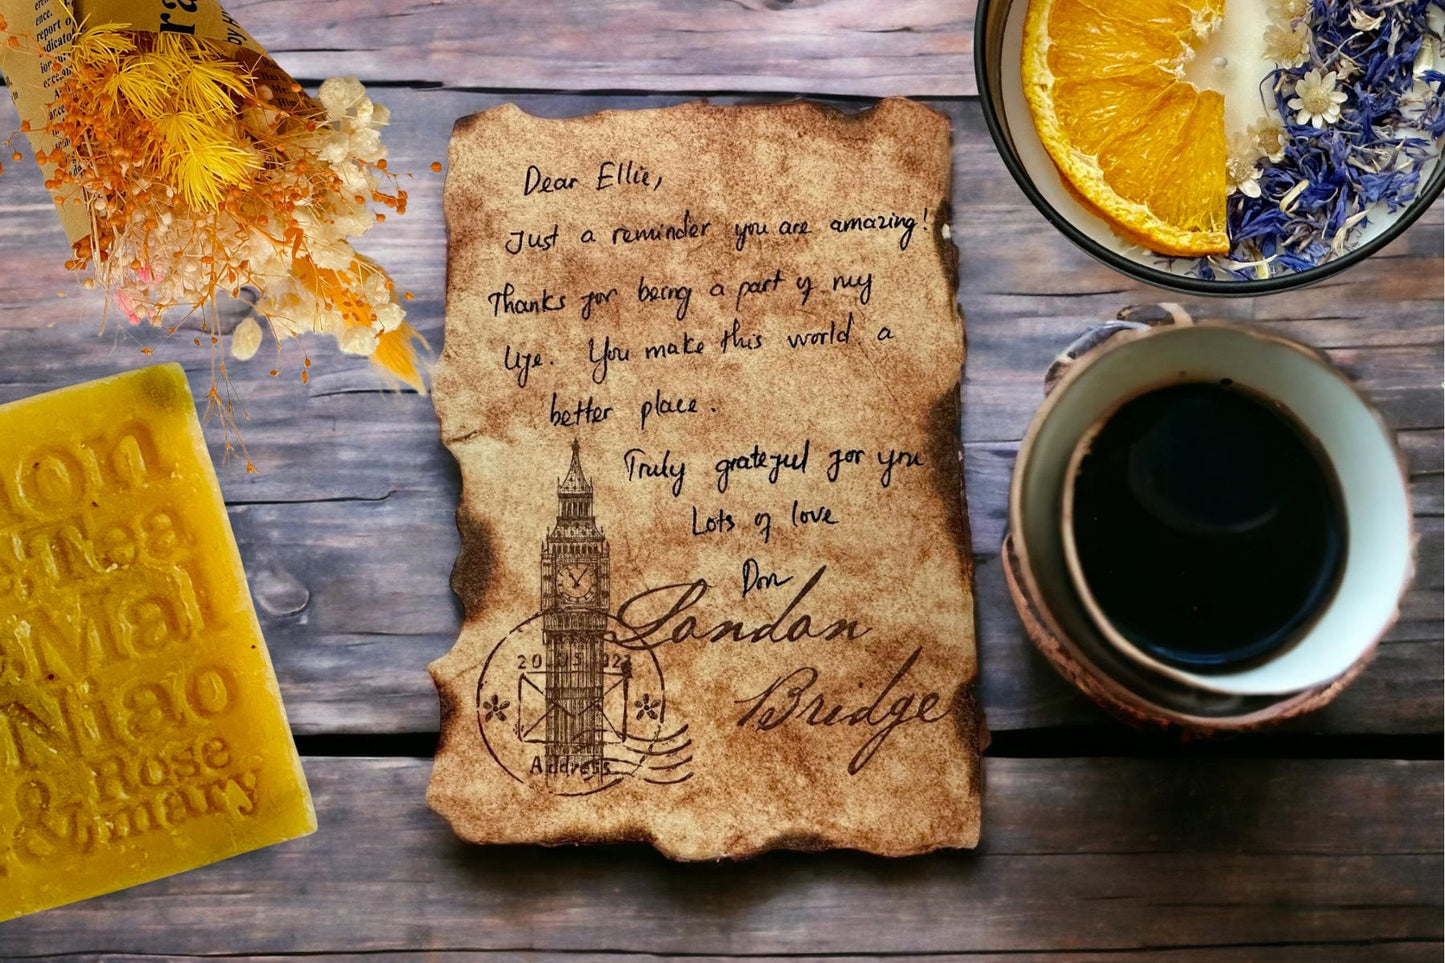 Dear Ellie,
Just a reminder you are amazing!
Thanks for being a part of my
life. You make this world a
better place.
Truly grateful for you
Lots of love
Don
London
Bridge
20 05 02
Address
ion
Tea
Mal
Niao
& Rose
mary
report o